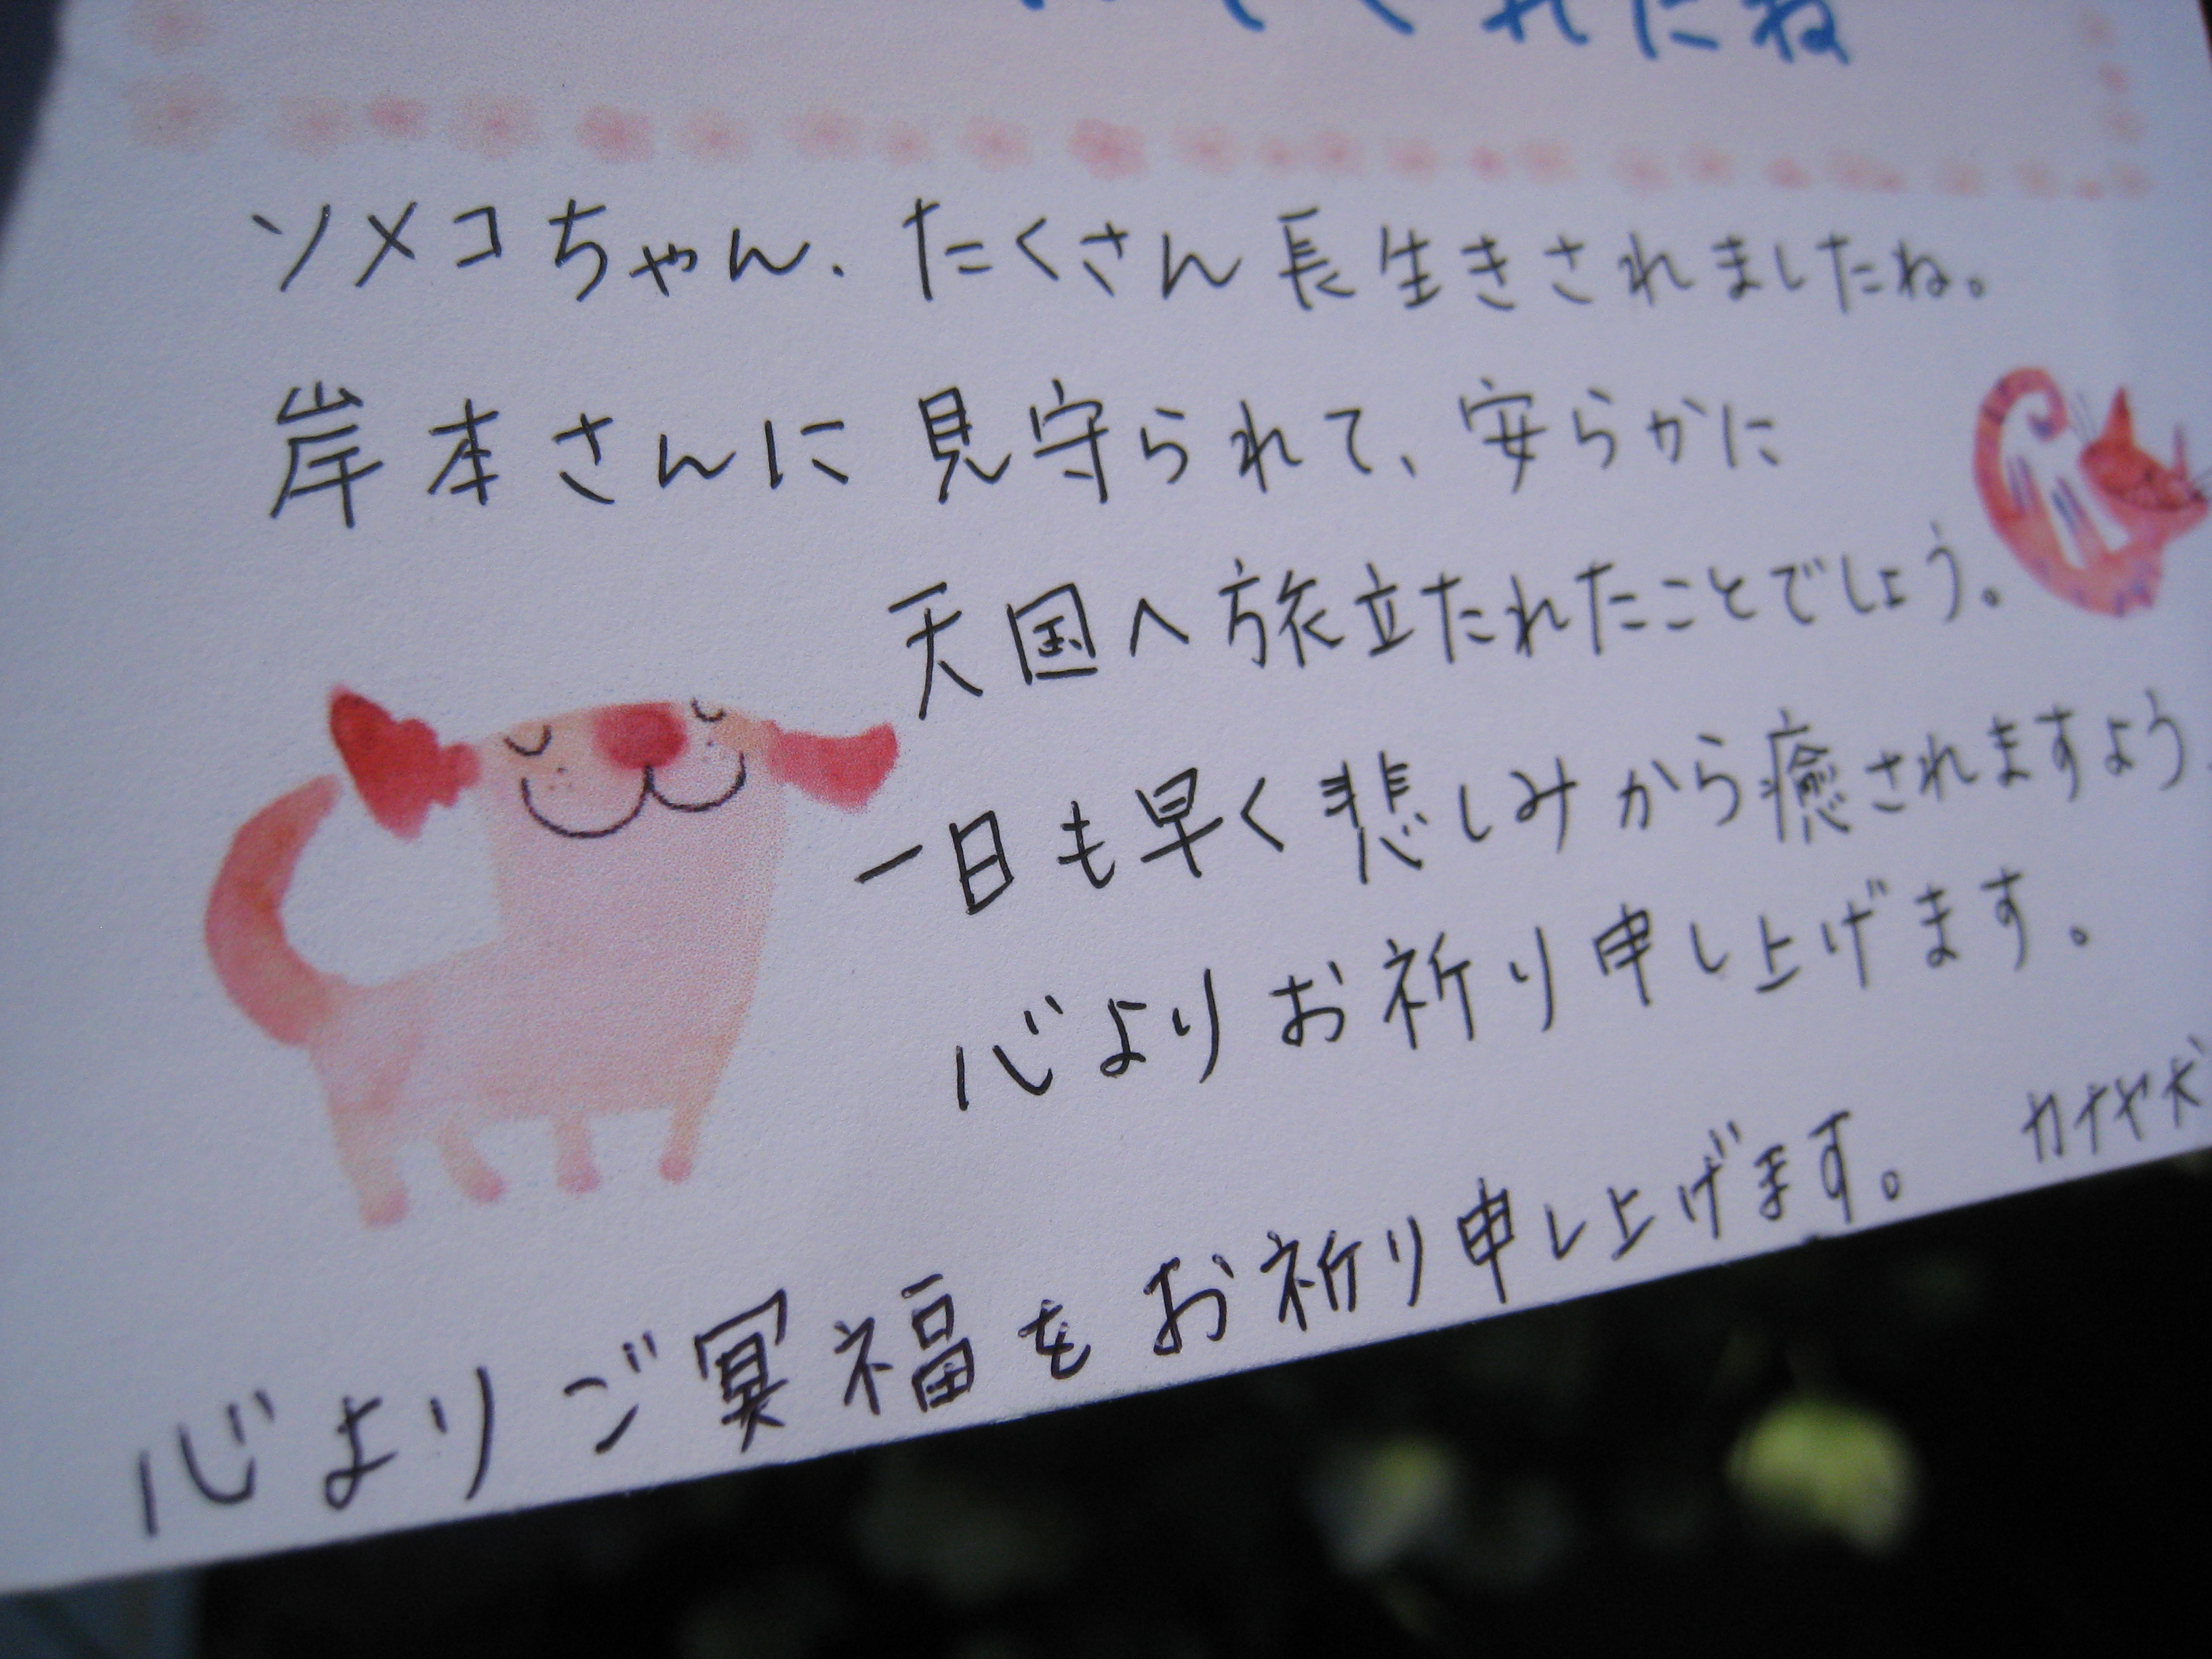 くれたね
ソメコちゃん、たくさん長生きされましたね。
岸本さんに見守られて、安らかに
天国へ旅立たれたことでしょう。
一日も早く悲しみから癒されますよう
心よりお祈り申し上げます。
カナヤ犬
心よりご冥福をお祈り申し上げます。